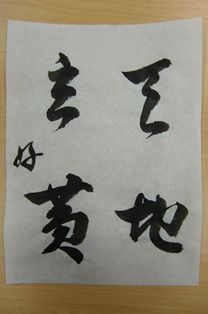 天地
玄黄
好